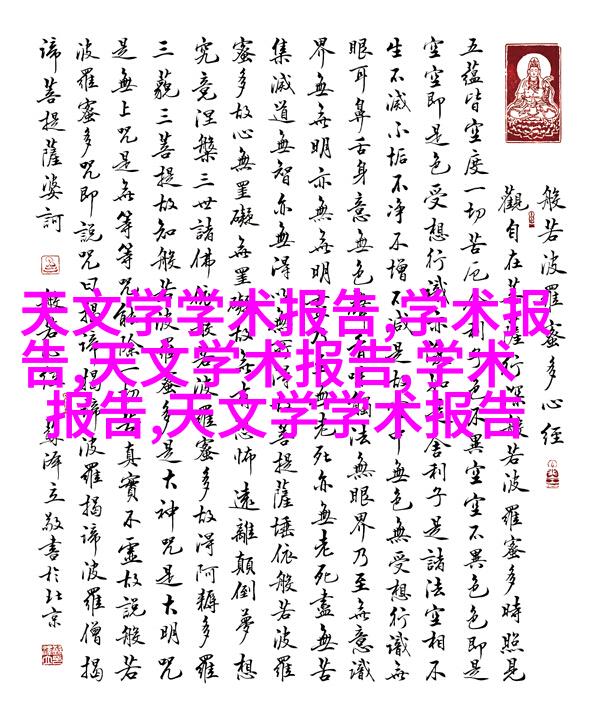 般若波羅蜜多心經
觀自在菩薩行深般若波羅蜜多時照見
五蘊皆空度一切苦厄舍利子色不異空空不異色色即是
空空即是色受想行識亦復如是舍利子是諸法空相不
生不滅不垢不净不增不減是故空中無色無受想行識無
眼耳鼻舌身意無色聲香味觸法無眼界乃至無意識
界無無明亦無無明盡乃至無老死亦無老死盡無苦
集滅道無智亦無得以無所得故菩提薩埵依般若波羅
蜜多故心無罣礙無罣礙故無有恐怖遠離顛倒夢想
究竟涅槃三世諸佛依般若波羅蜜多故得阿耨多羅
三藐三菩提故知般若波羅蜜多是大神咒是大明咒
是無上咒是無等等咒能除一切苦真實不虛故說般若
波羅蜜多咒即說咒曰揭諦揭諦波羅揭諦波羅僧揭
諦菩提薩婆訶 般若心經 澤立敬書於北京
天文学学术报告,学术报
告,天文学术报告,学术
报告,天文学学术报告